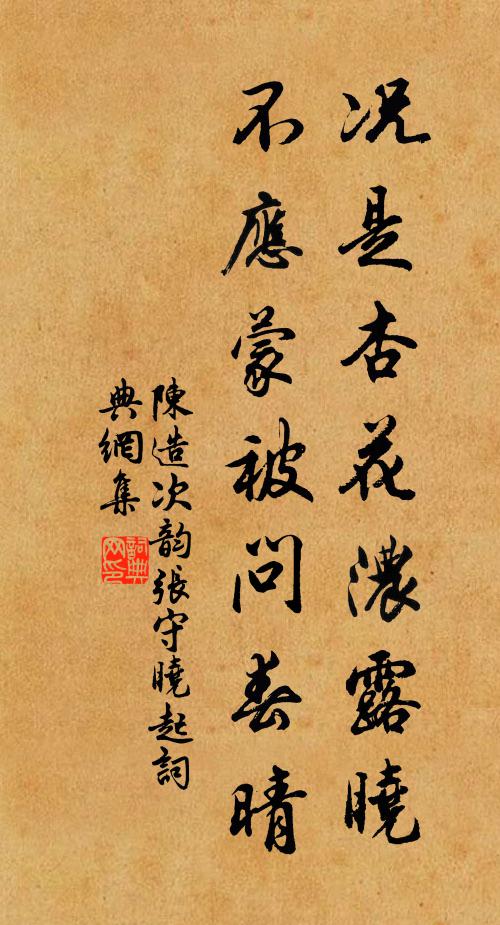 况是杏花濃露曉
不應蒙被問春晴
陳造次韵張守曉起詞
典網集
詞典
网印